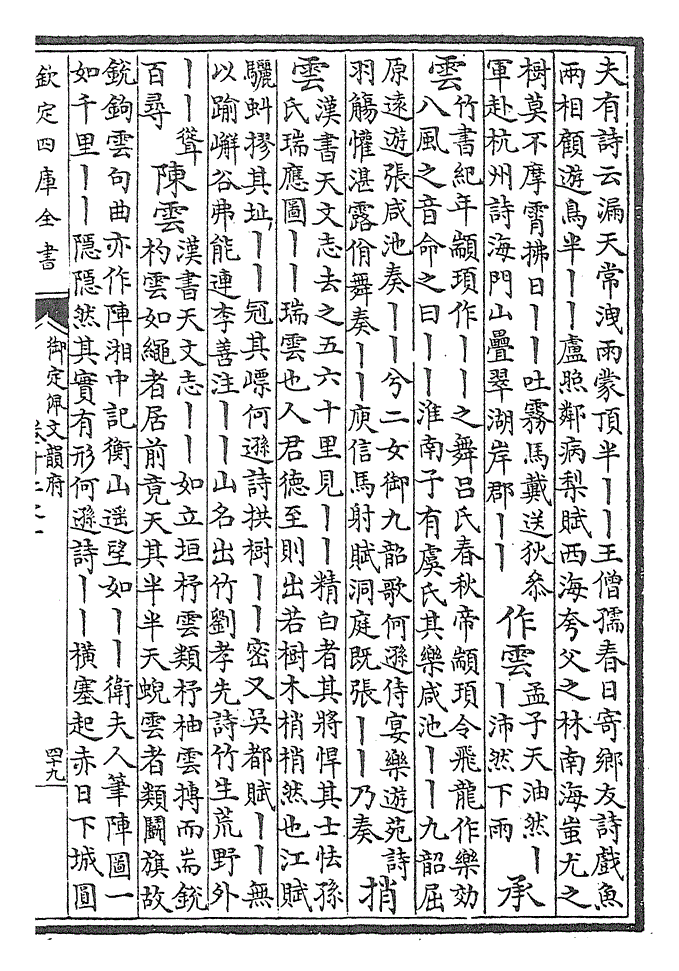 夫有詩云漏天常洩雨蒙頂半丨丨王僧孺春日寄鄉友詩戲魚
兩相顧遊鳥半丨丨盧照鄰病梨賦西海夸父之林南海蚩尤之
樹莫不摩霄拂日丨丨吐霧馬戴送狄叅
軍赴杭州詩海門山疊翠湖岸郡丨丨
作雲
孟子天油然丨
丨沛然下雨
承
雲
竹書紀年顓頊作丨丨之舞呂氏春秋帝顓頊令飛龍作樂効
八風之音命之曰丨丨淮南子有虞氏其樂咸池丨丨九韶屈
原遠遊張咸池奏丨丨兮二女御九韶歌何遜侍宴樂遊苑詩
羽觴懽湛露佾舞奏丨丨庾信馬射賦洞庭既張丨丨乃奏
捎
雲
漢書天文志去之五六十里見丨丨精白者其將悍其士怯孫
氏瑞應圖丨丨瑞雲也人君德至則出若樹木梢梢然也江賦
驪虯摎其址丨丨冠其㟽何遜詩拱樹丨丨密又吳都賦丨丨無
以踰嶰谷弗能連李善注丨丨山名出竹劉孝先詩竹生荒野外
丨丨聳
百尋
陳雲
漢書天文志丨丨如立垣杼雲類杼柚雲摶而耑銳
杓雲如繩者居前竟天其半半天蜺雲者類鬭旗故
銳鉤雲句曲亦作陣湘中記衡山遥望如丨丨衛夫人筆陣圖一
如千里丨丨隱隱然其實有形何遜詩丨丨橫塞起赤日下城圓
欽定四庫全書
御定佩文韻府
四十九